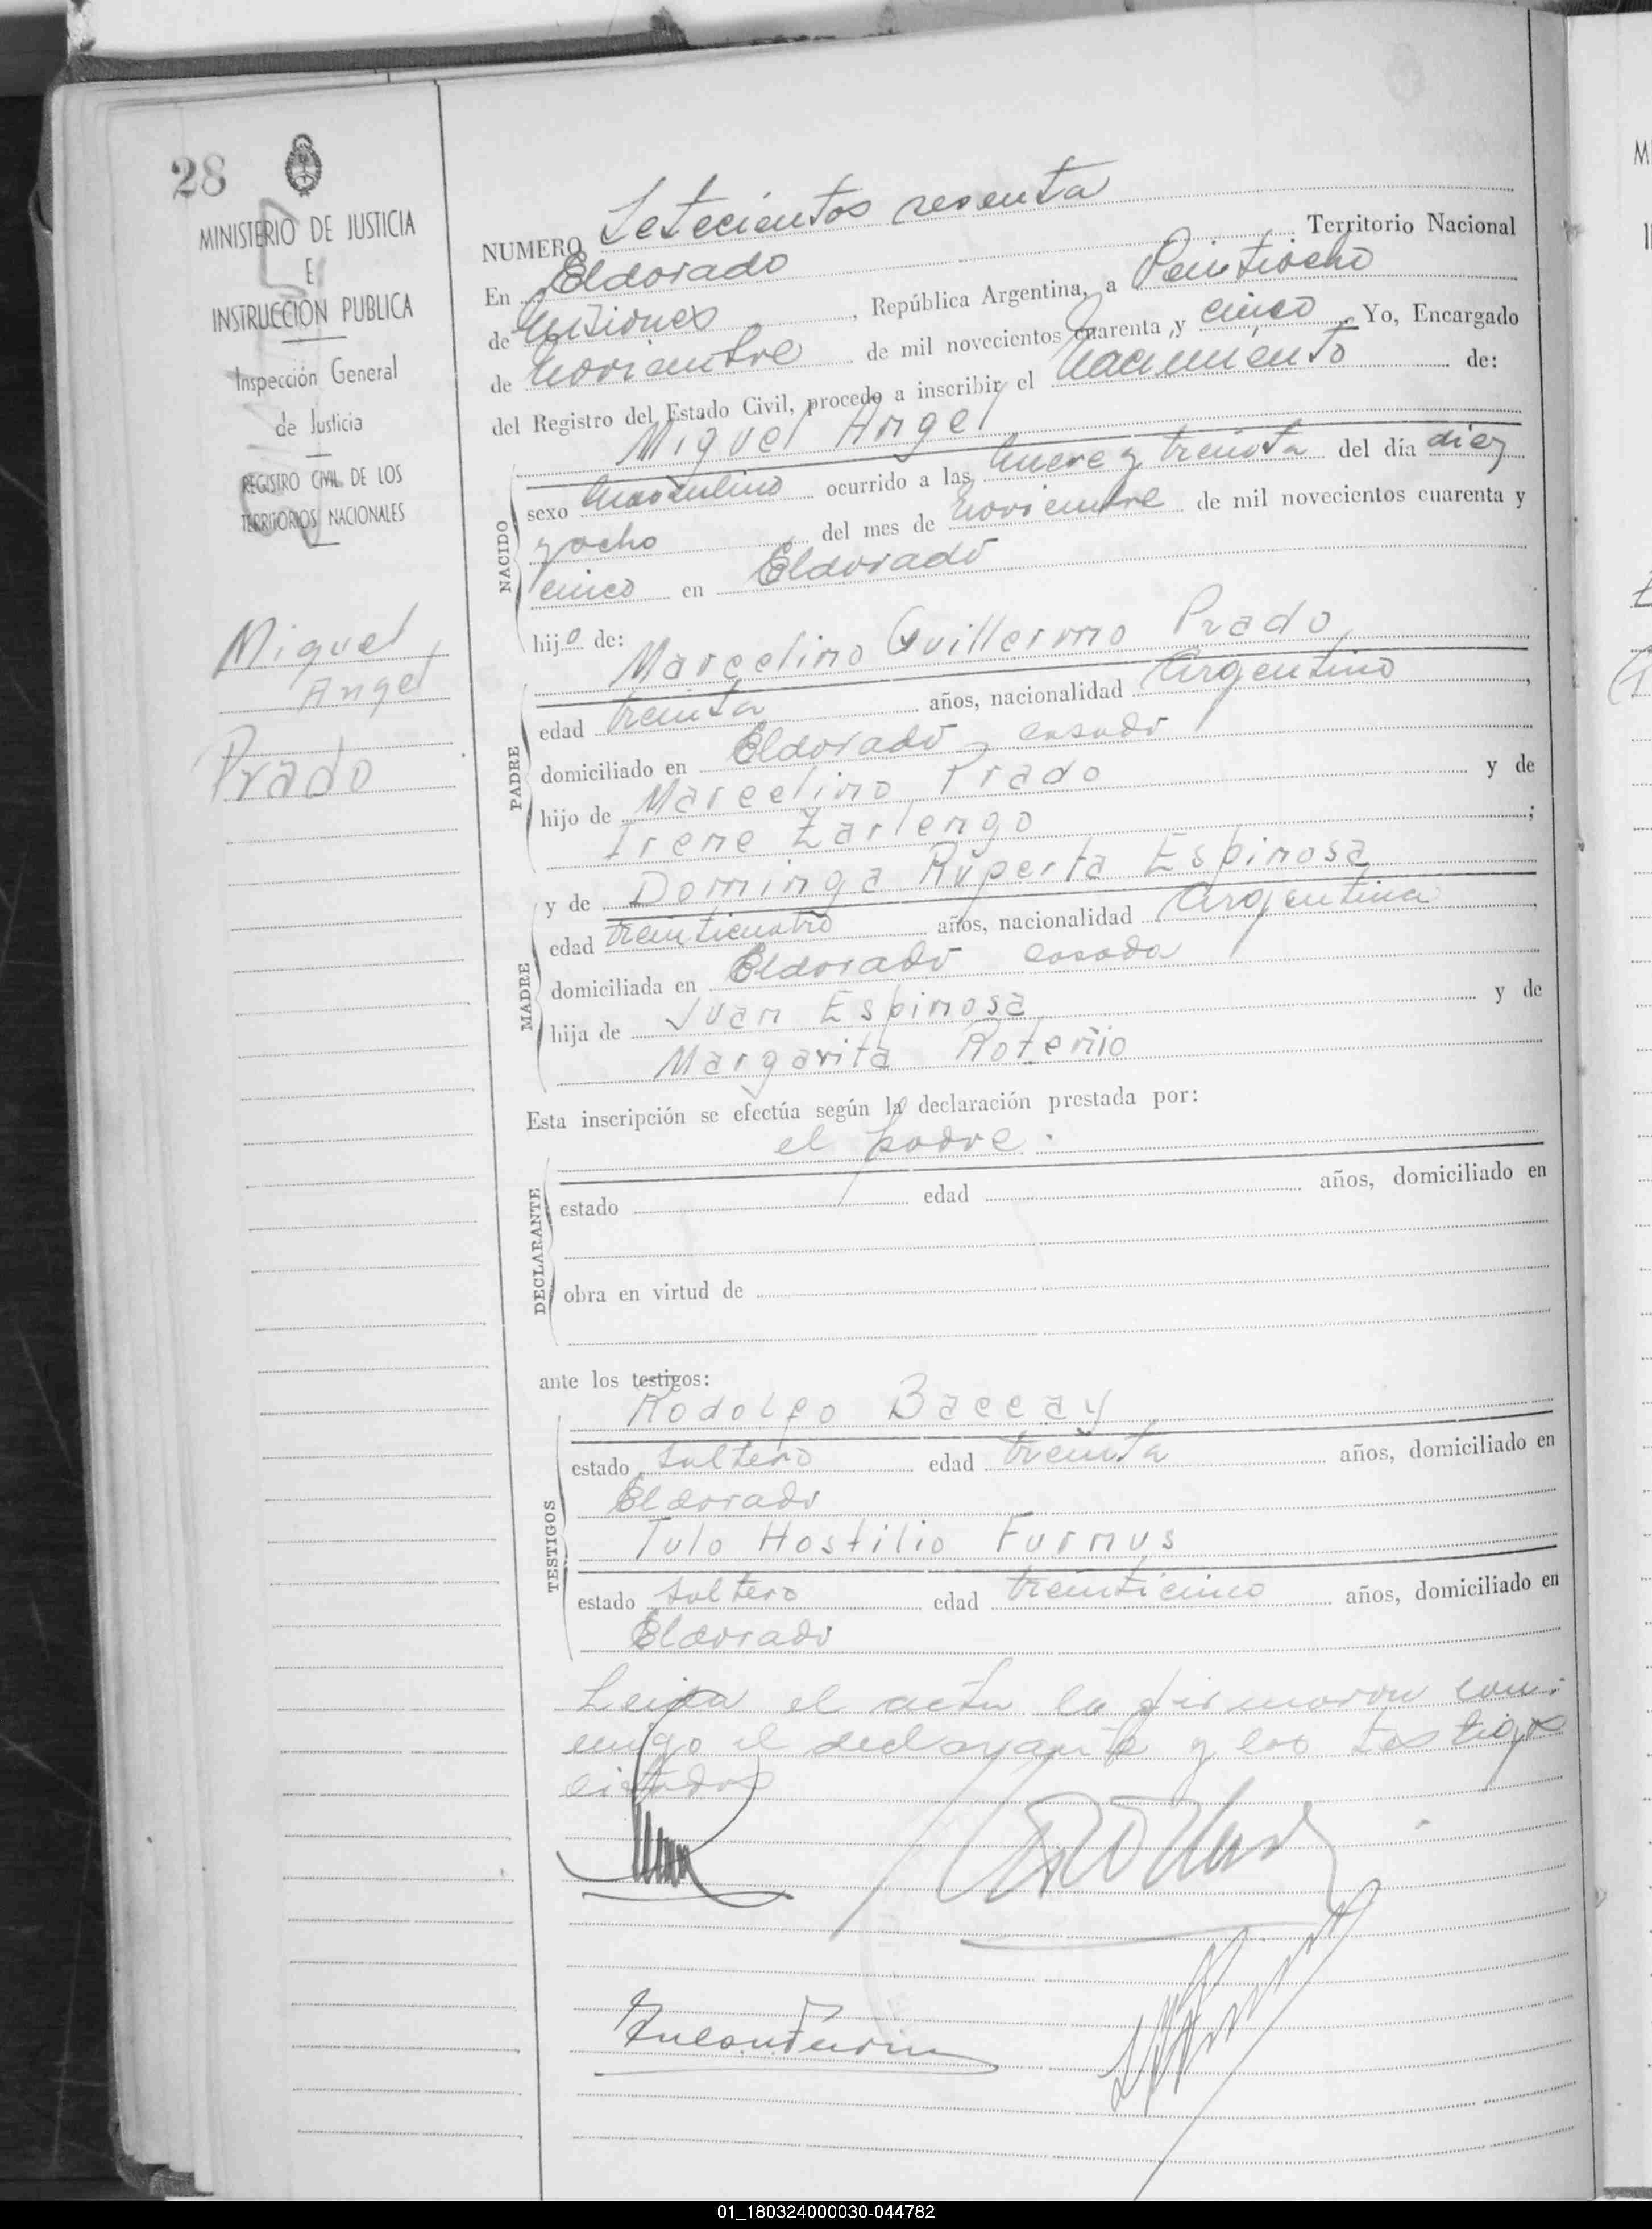 28
MINISTERIO DE JUSTICIA
E
INSTRUCCIÓN PUBLICA
Inspección General
de Justicia
REGISTRO CIVIL DE LOS
TERRITORIOS NACIONALES
Miguel
Angel
Prado
NUMERO Setecientos sesenta
En Eldorado Territorio Nacional
de Misiones, República Argentina, a Veintiocho
de noviembre de mil novecientos cuarenta y cinco. Yo, Encargado
del Registro del Estado Civil, procedo a inscribir el nacimiento de:
Miguel Angel
NACIDO
sexo masculino ocurrido a las nueve y treinta del día diez
y ocho del mes de noviembre de mil novecientos cuarenta y
cinco en Eldorado
hijo de:
Marcelino Guillermo Prado,
PADRE
edad treinta años, nacionalidad Argentino,
domiciliado en Eldorado, casado
hijo de Marcelino Prado y de
Irene Zarlengo;
y de Dominga Ruperta Espinosa
MADRE
edad treinticuatro años, nacionalidad Argentina,
domiciliada en Eldorado casada
hija de Juan Espinosa y de
Margarita Roteñio
Esta inscripción se efectúa según la declaración prestada por:
el padre.
DECLARANTE
estado edad años, domiciliado en
obra en virtud de
ante los testigos:
Rodolfo Baccay
TESTIGOS
estado soltero edad treinta años, domiciliado en
Eldorado
Tulo Hostilio Furnus
estado soltero edad treinticinco años, domiciliado en
Eldorado
Leida el acta la firmaron con-
migo el declarante y los testigos
citados
01_180324000030-044782